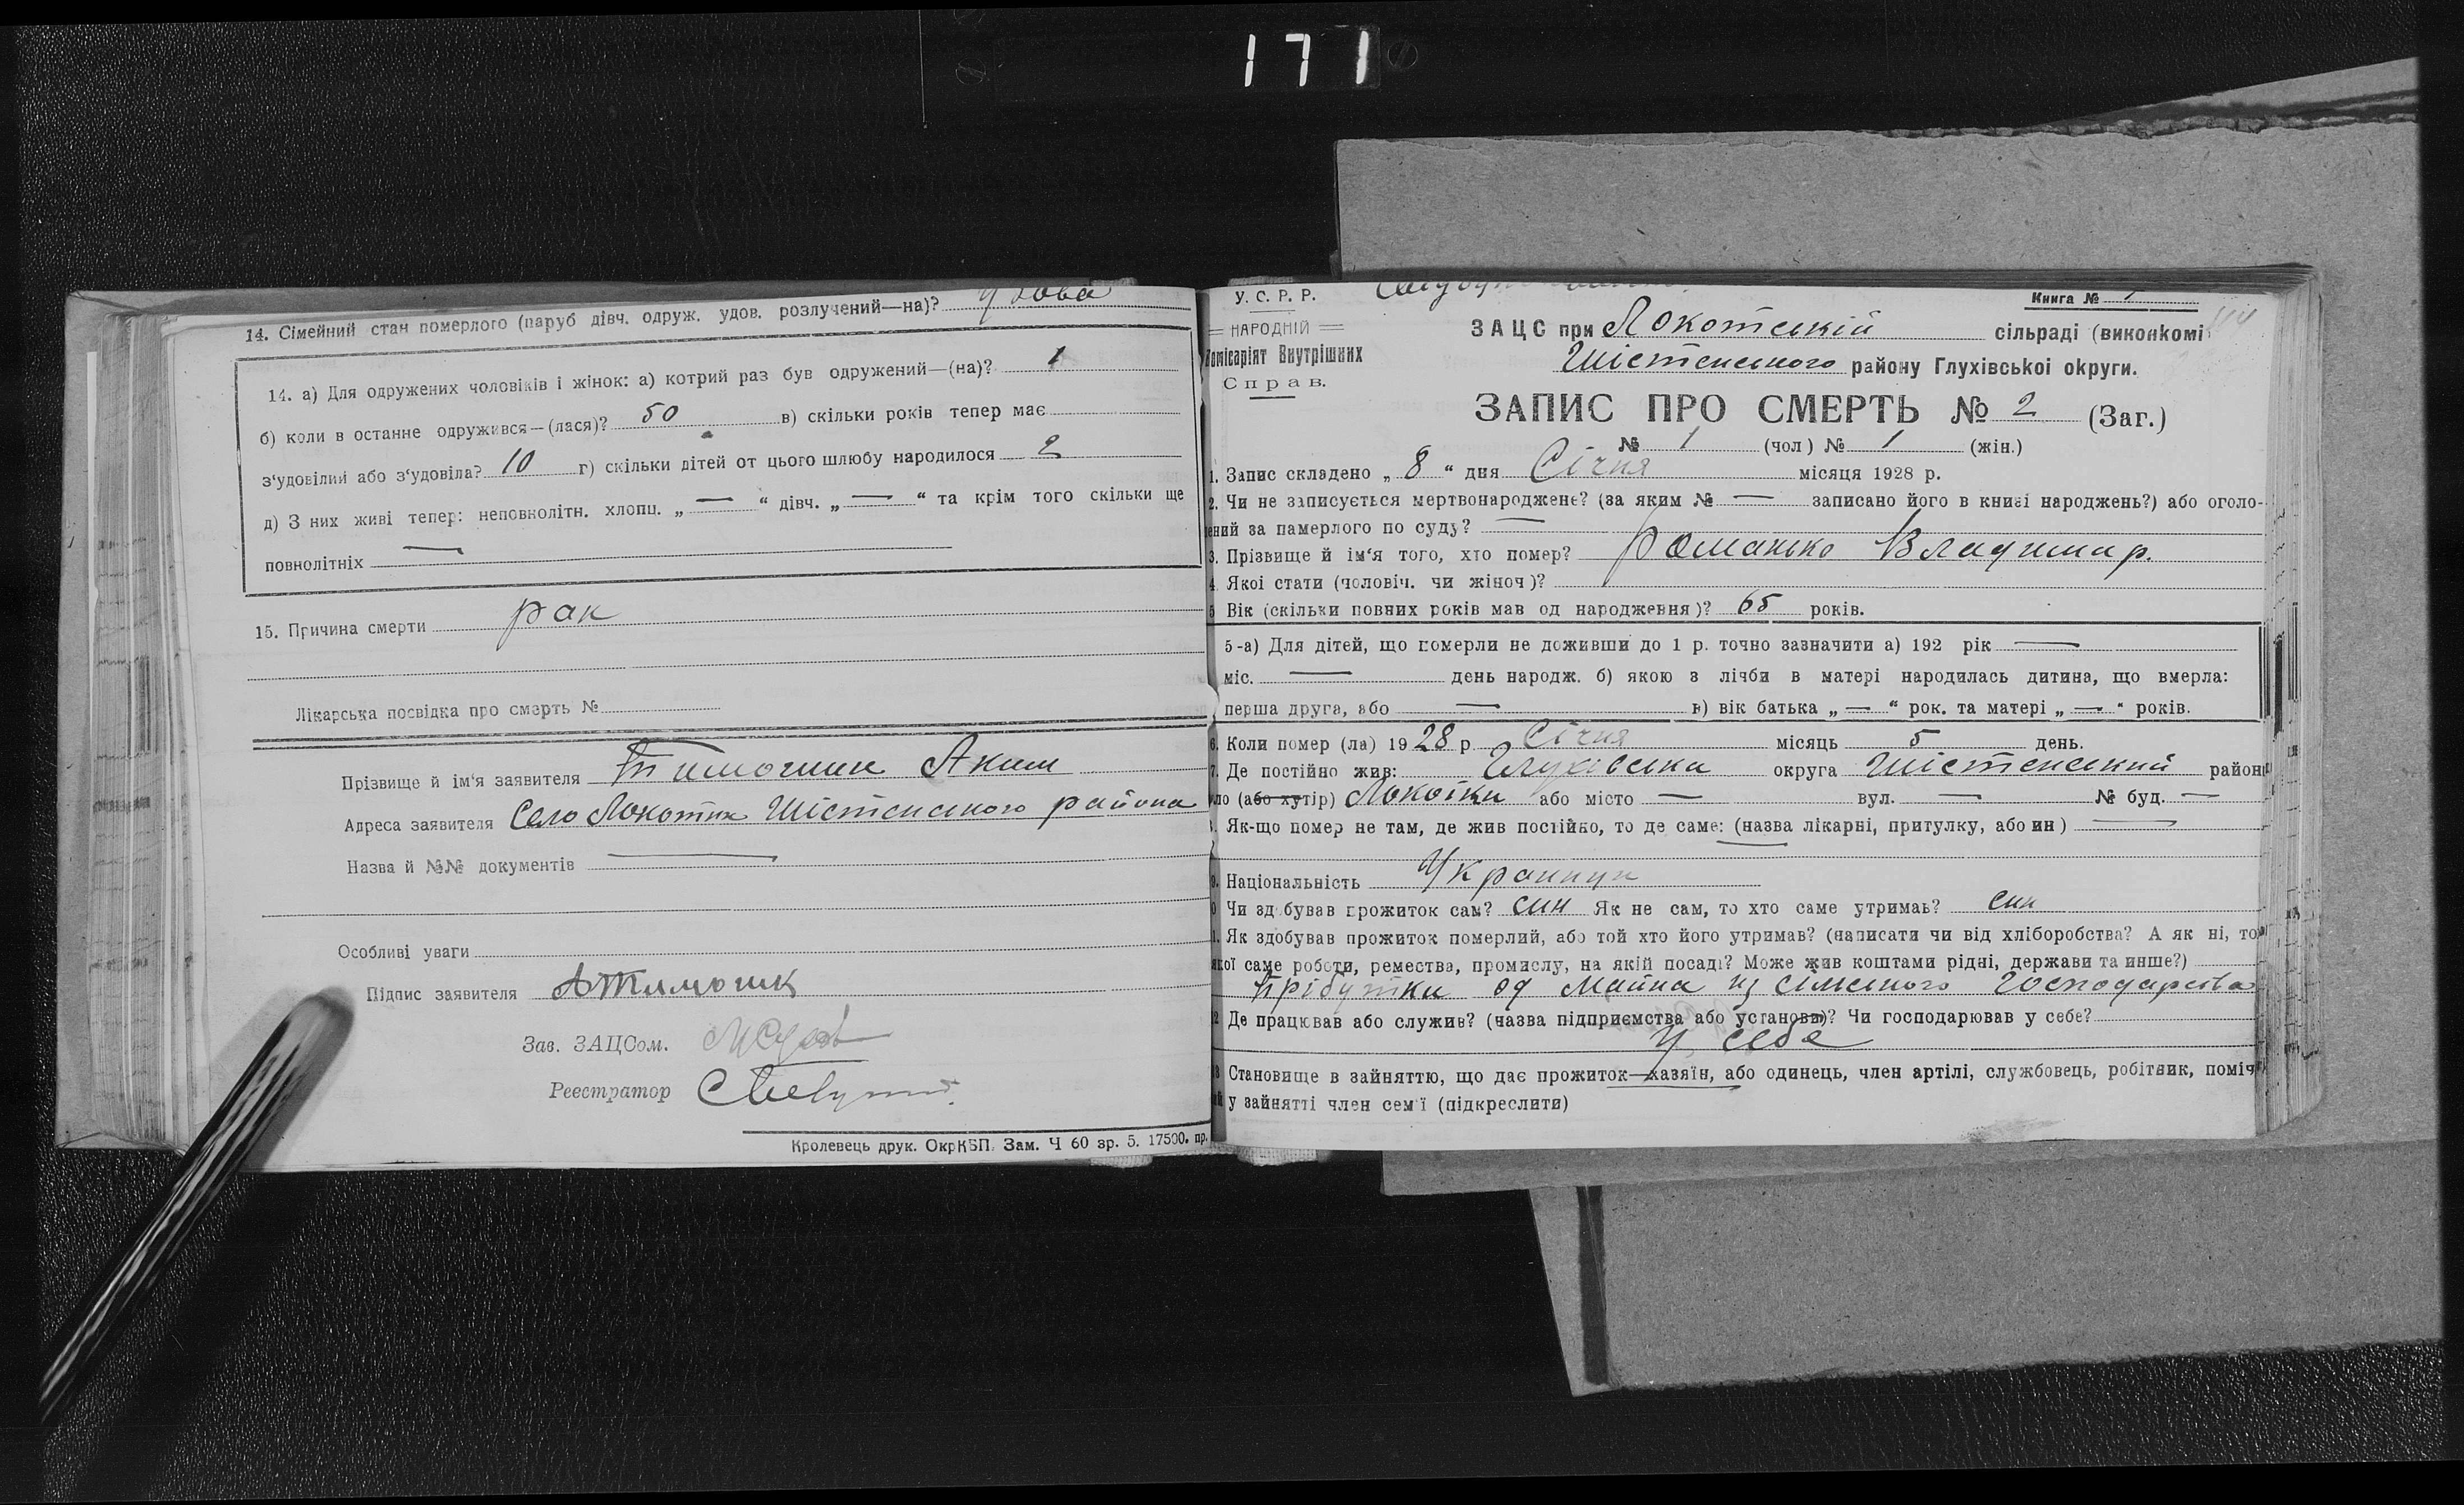 171
14. Сімейний стан померлого (паруб дівч. одруж. удов. розлучений—на)? Удова
14. а) Для одружених чоловіків і жінок: а) котрий раз був одружений—(на)? 1
б) коли в останне одружився—(лася)? 50 в) скільки років тепер має
з'удовілий або з'удовіла? 10 г) скільки дітей от цього шлюбу народилося 2
д) З них живі тепер: неповнолітн. хлопц. „ — “ дівч. „ — “ та крім того скільки ще
повнолітніх —
15. Причина смерти рак
Лікарська посвідка про смерть №
Прізвище й ім'я заявителя Тимошик Аким
Адреса заявителя Село Локотки Шістенського района
Назва й №№ документів —
Особливі уваги
Підпис заявителя АТимошик
Зав. ЗАЦСом.
Реєстратор
Кролевець друк. ОкрКБП. Зам. Ч 60 зр. 5. 17500. пр.
У. С. Р. Р.
НАРОДНІЙ
Комісаріят Внутрішних
Справ.
Книга № 1
ЗАЦС при Локотській сільраді (виконкомі
Шістенського району Глухівської округи.
ЗАПИС ПРО СМЕРТЬ № 2 (Заг.)
№ 1 (чол) № 1 (жін.)
1. Запис складено „ 8 “ дня Січня місяця 1928 р.
2. Чи не записується мертвонароджене? (за яким № — записано його в книзі народжень?) або оголо-
ений за памерлого по суду? —
3. Прізвище й ім'я того, хто помер? Романько Владимир.
4. Якої стати (чоловіч. чи жіноч)?
5 Вік (скільки повних років мав од народження)? 65 років.
5-а) Для дітей, що померли не доживши до 1 р. точно зазначити а) 192 рік —
міс. — день народж. б) якою з лічби в матері народилась дитина, що вмерла:
перша друга, або — в) вік батька „ — “ рок. та матері „ — “ років.
6. Коли помер (ла) 1928 р Січня місяць 5 день.
7. Де постійно жив: Глухівська округа Шістенський район
ло (або хутір) Локотки або місто — вул. — № буд. —
Як-що помер не там, де жив постійно, то де саме: (назва лікарні, притулку, або ин) —
Національність Украинци
Чи здобував прожиток сам? син Як не сам, то хто саме утримав? син
Як здобував прожиток померлий, або той хто його утримав? (написати чи від хліборобства? А як ні, то
кої саме роботи, ремества, промислу, на якій посаді? Може жив коштами рідні, держави та инше?)
прібутки од майна из сільського Господарства
12 Де працював або служив? (назва підприємства або установи)? Чи господарював у себе?
У себе
13 Становище в зайняттю, що дає прожиток—хазяїн, або одинець, член артілі, службовець, робітник, поміч
у зайнятті член сем'ї (підкреслити)